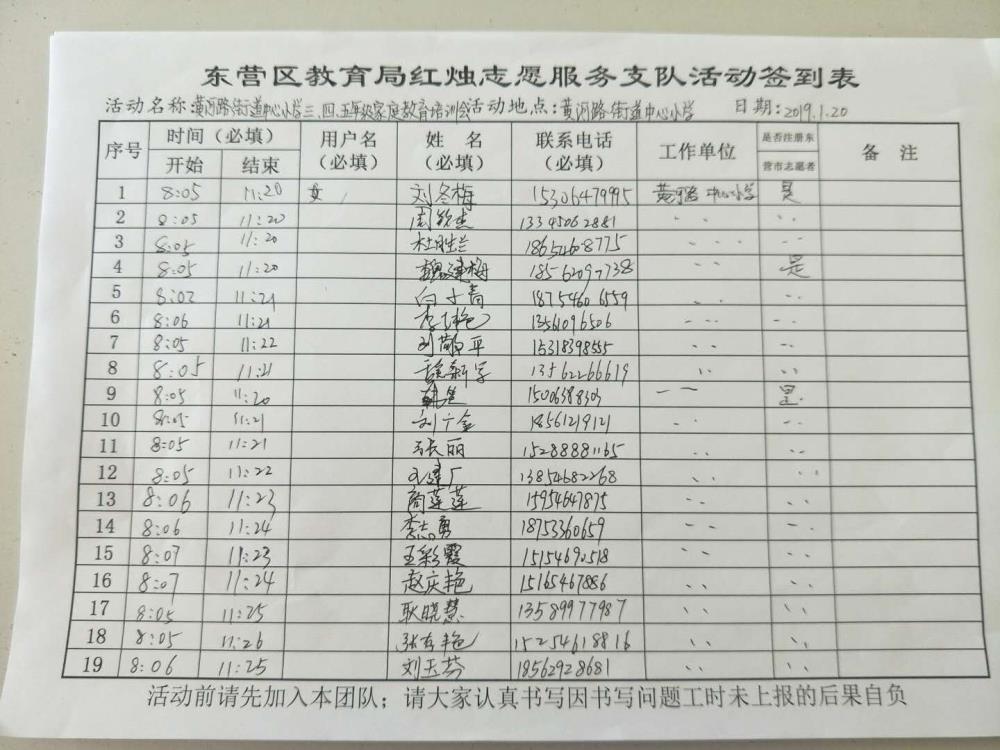 东营区教育局红烛志愿服务支队活动签到表
活动名称:黄河路街道中心小学三、四、五年级家庭教育培训会 活动地点:黄河路街道中心小学 日期:2019.1.20
序号 时间（必填） 用户名（必填） 姓 名（必填） 联系电话（必填） 工作单位 是否注册东营市志愿者 备 注
开始 结束
1 8:05 11:20 女 刘冬梅 15306479995 中心小学 是
2 8:05 11:20 13345062881 〃 〃
3 8:05 11:20 杜胜兰 18654608775 〃 〃
4 8:05 11:20 魏建梅 18562097738 〃 是
5 8:02 11:21 18754606559 〃 〃
6 8:06 11:21 13561096506 〃 〃
7 8:05 11:22 刘敬平 15318398555 〃 〃
8 8:05 11:21 13562266619 〃 〃
9 8:05 11:20 15006388303 〃 是
10 8:05 11:21 刘广金 18561219121 〃 〃
11 8:05 11:21 张丽 15288881165 〃 〃
12 8:05 11:22 13854682268 〃 〃
13 8:06 11:23 商莲莲 15954647875 〃 〃
14 8:06 11:24 李志勇 18753360659 〃 〃
15 8:07 11:23 王彩霞 15154690518 〃 〃
16 8:07 11:24 赵庆艳 15165467886 〃 〃
17 8:05 11:25 耿晓慧 13589977987 〃 〃
18 8:05 11:26 张友艳 15254618816 〃 〃
19 8:06 11:25 刘玉芬 18562928681 〃 〃
活动前请先加入本团队；请大家认真书写因书写问题工时未上报的后果自负